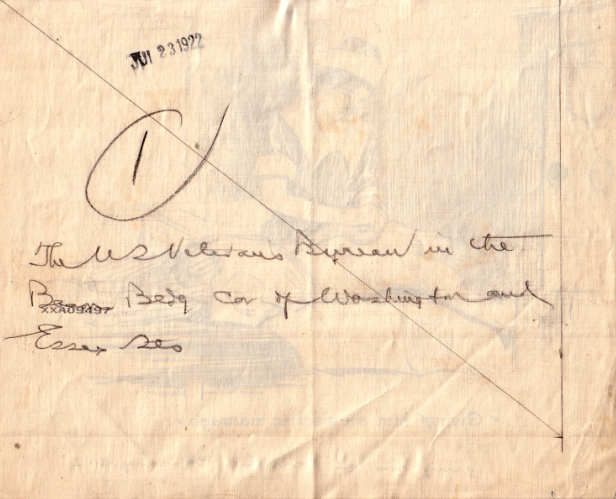 JUL 23 1922
1
The U S Veterans Bureau in the
Bldg Cor of Washington and
XXA09497
Essex Sts